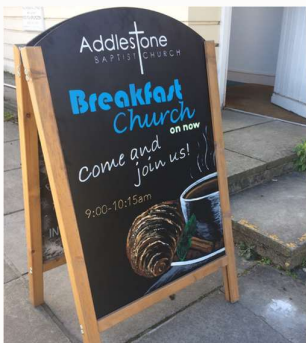 Addlestone
BAPTIST CHURCH
Breakfast
Church
on now
come and
join us!
9:00-10:15am
IN